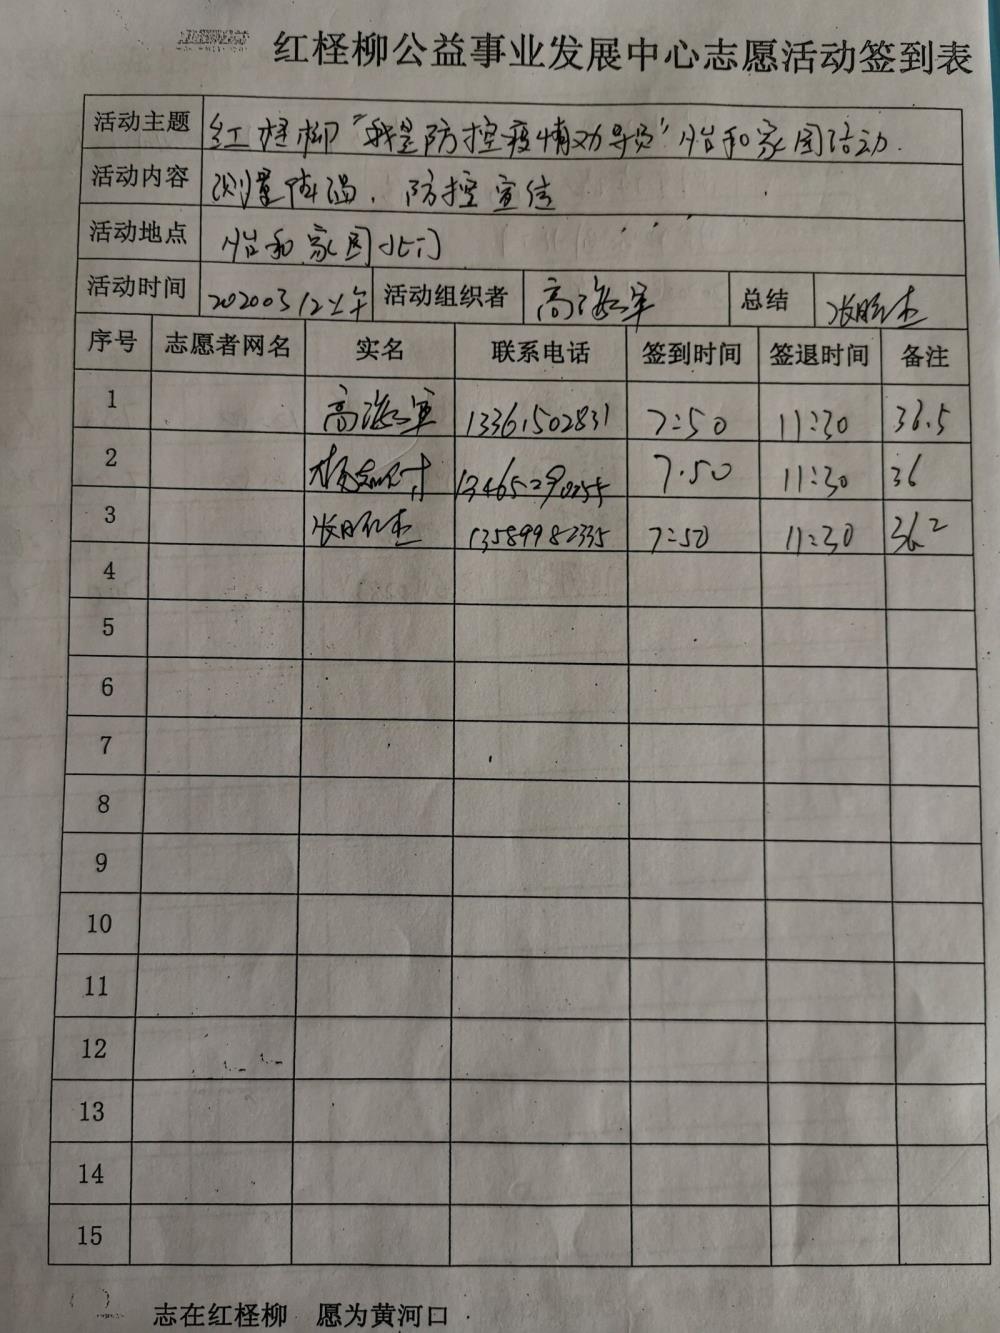 红柽柳公益事业发展中心志愿活动签到表
活动主题 红柽柳“我是防控疫情劝导员”怡和家园活动.
活动内容 测量体温、防控宣传
活动地点 怡和家园北门
活动时间 20200312上午 活动组织者 高海军 总结
序号 志愿者网名 实名 联系电话 签到时间 签退时间 备注
1 高海军 13361502831 7:50 11:30 36.5
2 7.50 11:30 36
3 13589982335 7:50 11:30 36.2
4
5
6
7
8
9
10
11
12
13
14
15
志在红柽柳 愿为黄河口